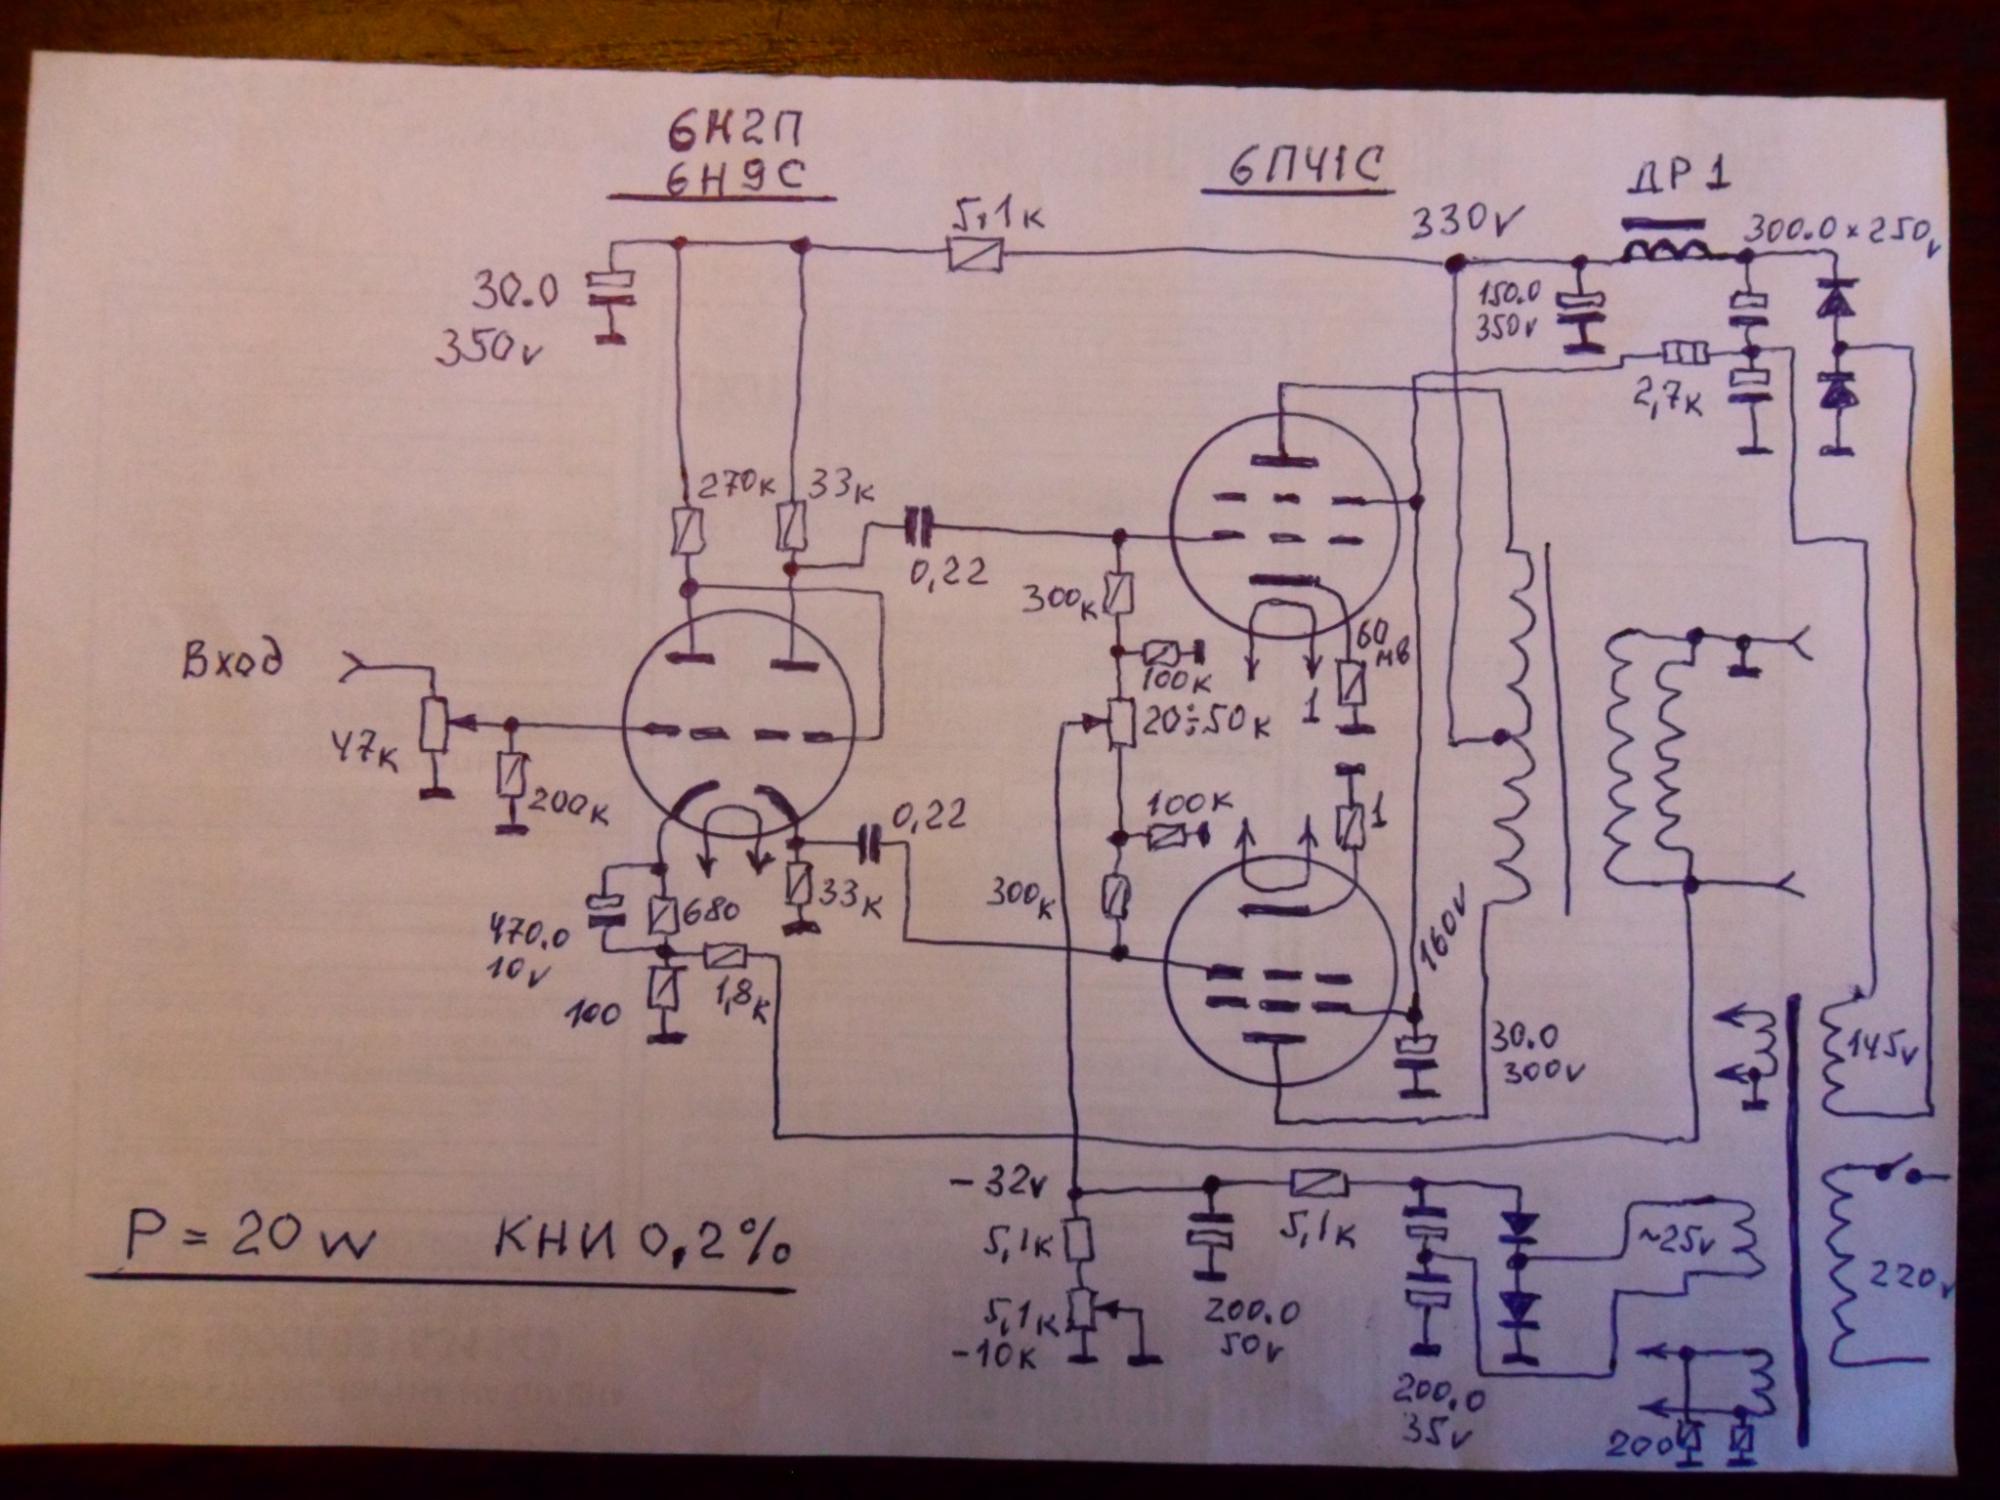 6Н2П
6Н9С
6П41С
ДР1
5,1к
330v
300.0 × 250v
30.0
350v
150.0
350v
2,7к
270к
33к
0,22
300к
Вход
47к
200к
100к
20÷50к
60
мв
1
100к
1
0,22
33к
300к
680
470.0
10v
100
1,8к
160v
30.0
300v
145v
-32v
5,1к
5,1к
~25v
220v
P = 20w КНИ 0,2%
5,1к
-10к
200.0
50v
200.0
35v
200